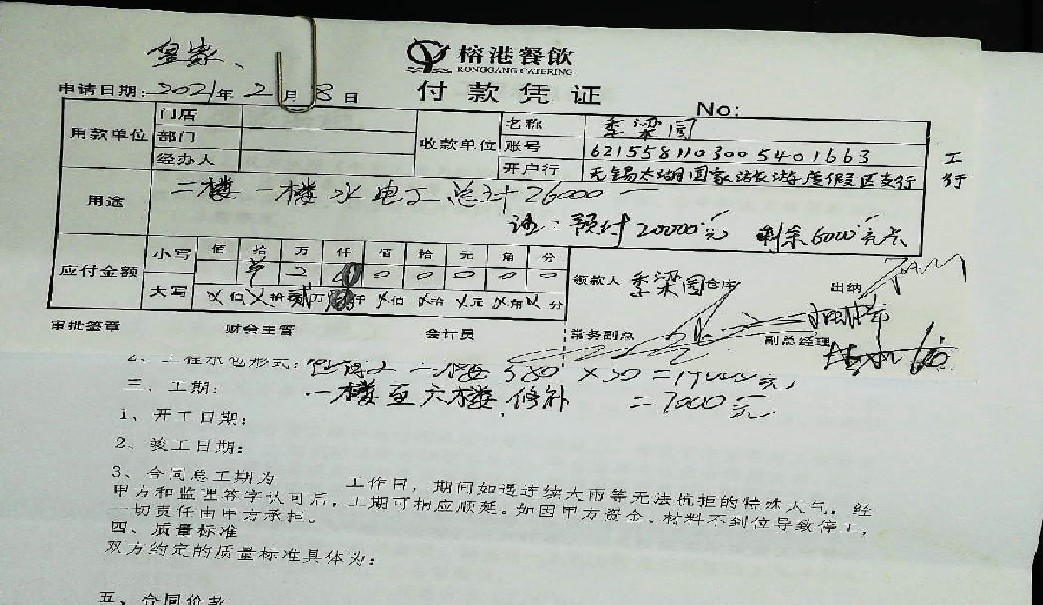 榕港餐飲
RONGGANG CATERING
付款凭证
申请日期: 2021年2月8日
No:
用款单位 门店 收款单位 名称 季梁园
部门 账号 6215581103005401663
经办人 开户行 无锡太湖国家旅游度假区支行
工行
用途 二楼一楼水电工总计26000
注:预付20000元 剩余6000元
应付金额 小写 佰 拾 万 仟 佰 拾 元 角 分
2 0 0 0 0 0 0
大写
领款人 季梁园 出纳
审批签章 财会主管 会计员 常务副总 副总经理
三、工期: 一楼至六楼修补 =7000元
1、开工日期:
2、竣工日期:
3、合同总工期为 工作日,期间如遇连续大雨等无法抗拒的特殊天气,经
甲方和监理签字认可后,工期可相应顺延。如因甲方资金、材料不到位导致停工,
一切责任由甲方承担。
四、质量标准
双方约定的质量标准具体为:
五、合同价款